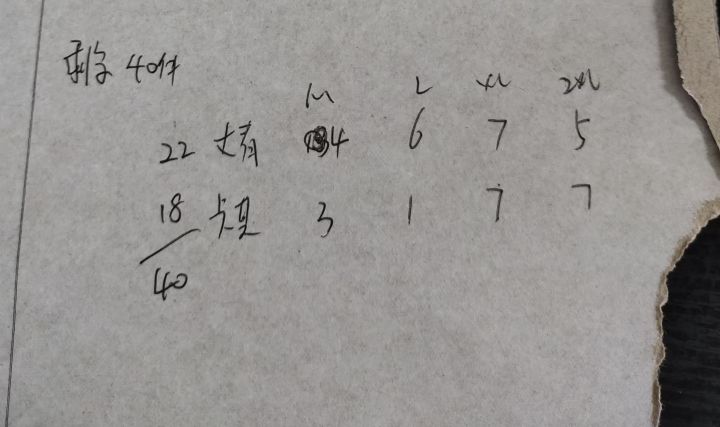 剩余 40件
M L XL 2XL
22 丈青 4 6 7 5
18 卡其 3 1 7 7
40